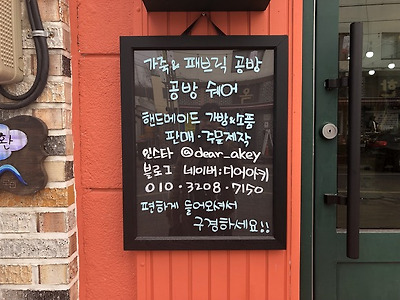 가죽 & 패브릭 공방
공방 쉐어
핸드메이드 가방&소품
판매·주문제작
인스타 @dear_akey
블로그 네이버:디어아키
010·3208·7150
편하게 들어오셔서
구경하세요!!
환